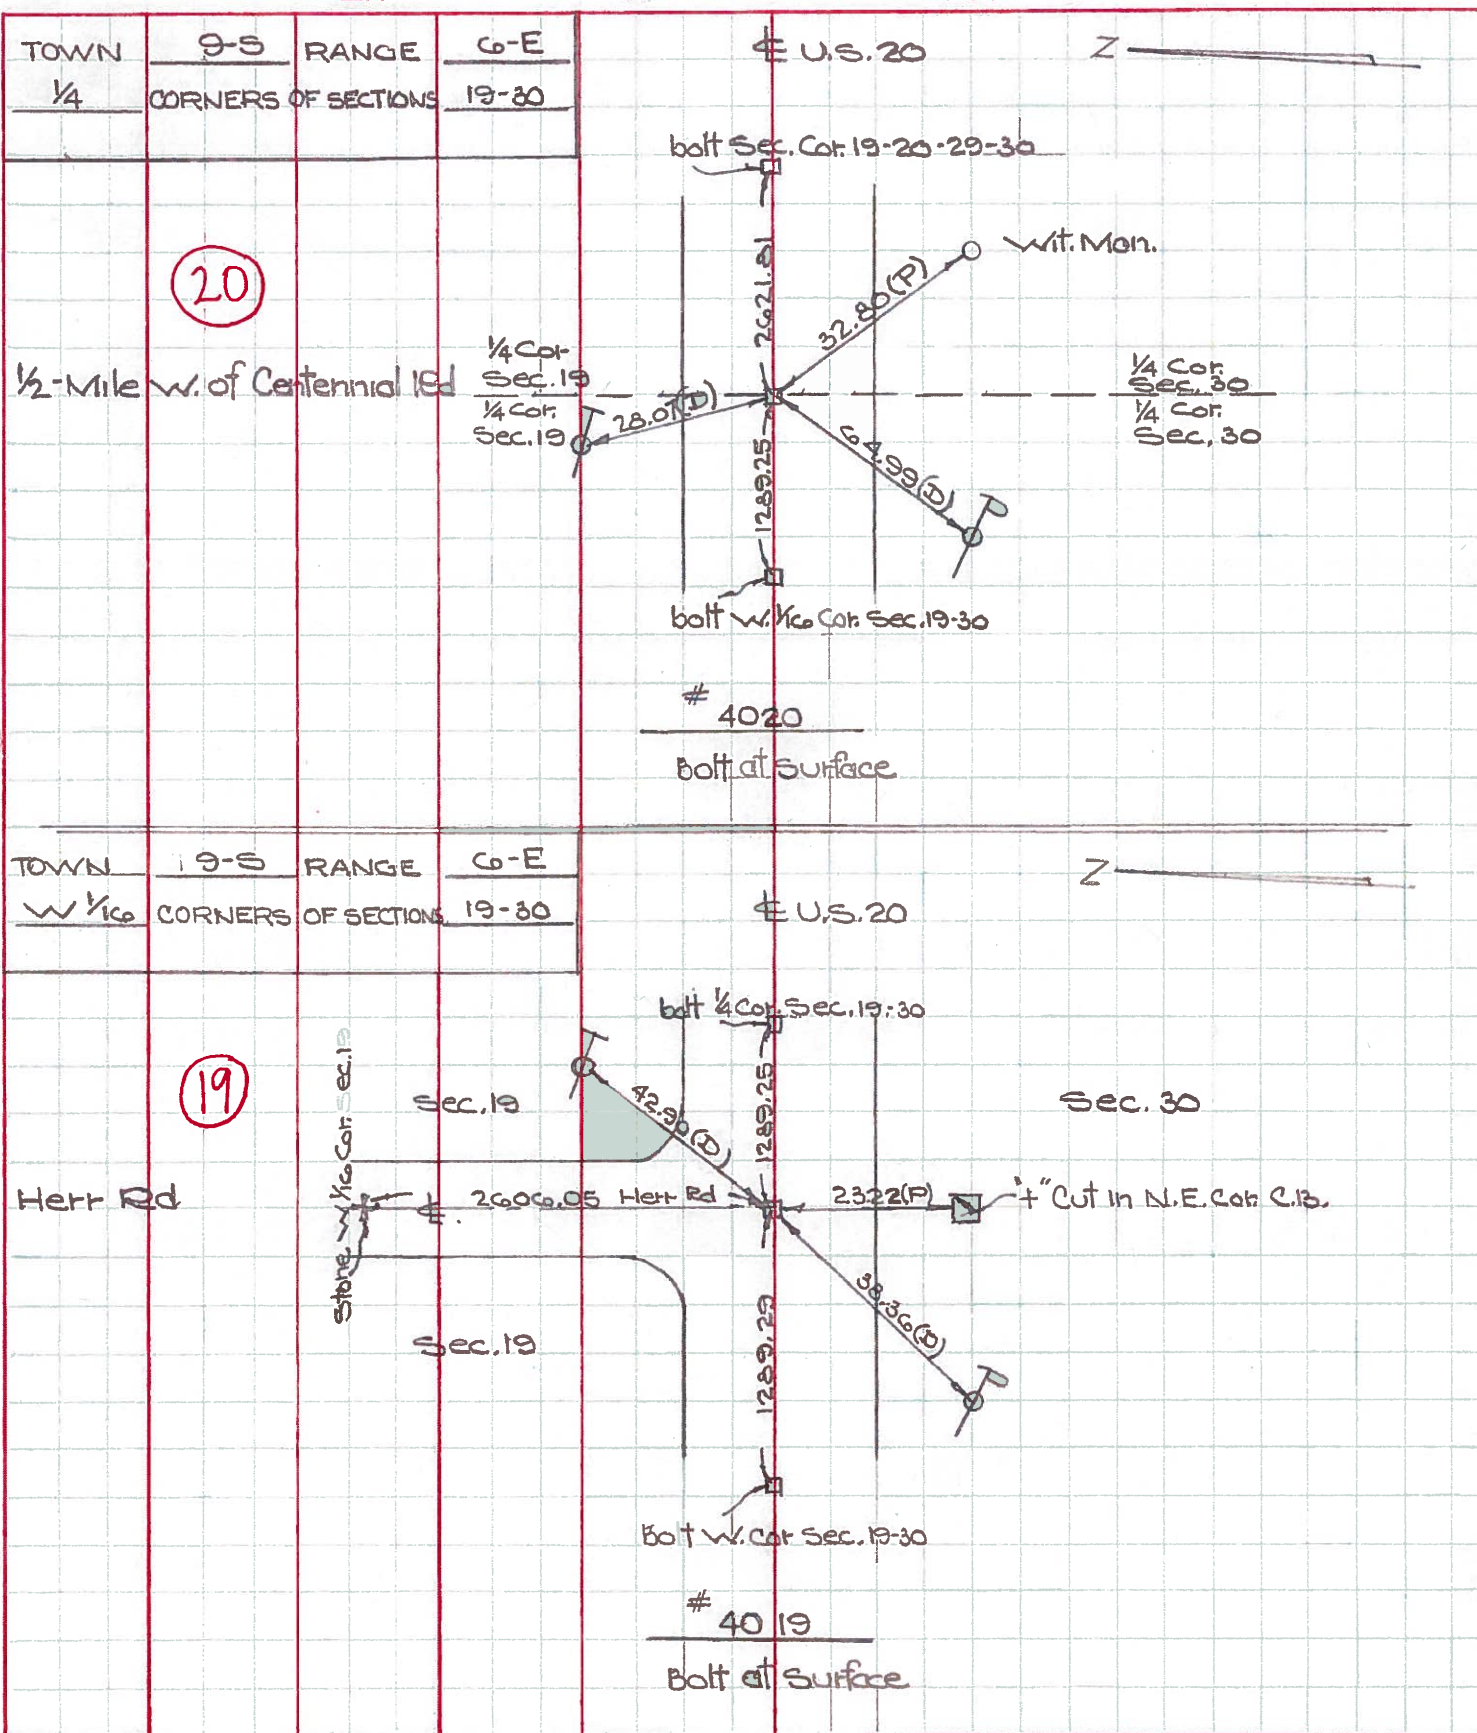 TOWN 9-S RANGE 6-E
1/4 CORNERS OF SECTIONS 19-30
℄ U.S. 20
Z
bolt Sec. Cor. 19-20-29-30
20
Wit. Mon.
2621.81
32.80(P)
1/2-Mile W. of Centennial Rd
1/4 Cor.
Sec. 19
1/4 Cor.
Sec. 19
28.07(D)
1/4 Cor.
Sec. 30
1/4 Cor.
Sec. 30
1289.25
64.99(D)
bolt W. 1/16 Cor. Sec. 19-30
# 4020
Bolt at Surface
TOWN 9-S RANGE 6-E
W 1/16 CORNERS OF SECTIONS 19-30
℄ U.S. 20
Z
bolt 1/4 Cor. Sec. 19-30
19
Sec. 19
(D)
1289.25
Sec. 30
Herr Rd
Stone W 1/16 Cor. Sec. 19
℄ 2606.05 Herr Rd
2322(P)
"+" Cut in N.E. Cor. C.B.
38.36(D)
Sec. 19
1289.29
Bolt W. Cor Sec. 19-30
# 4019
Bolt at Surface